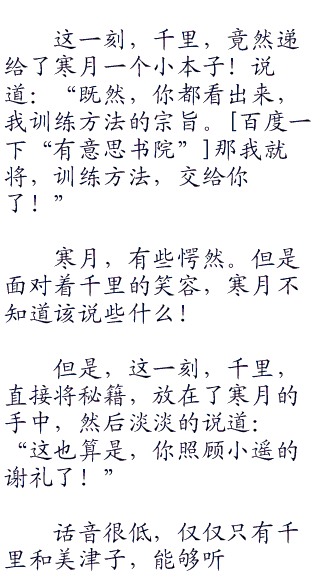 这一刻，千里，竟然递
给了寒月一个小本子！说
道：“既然，你都看出来，
我训练方法的宗旨。[百度一
下“有意思书院”]那我就
将，训练方法，交给你
了！”
寒月，有些愕然。但是
面对着千里的笑容，寒月不
知道该说些什么！
但是，这一刻，千里，
直接将秘籍，放在了寒月的
手中，然后淡淡的说道：
“这也算是，你照顾小遥的
谢礼了！”
话音很低，仅仅只有千
里和美津子，能够听